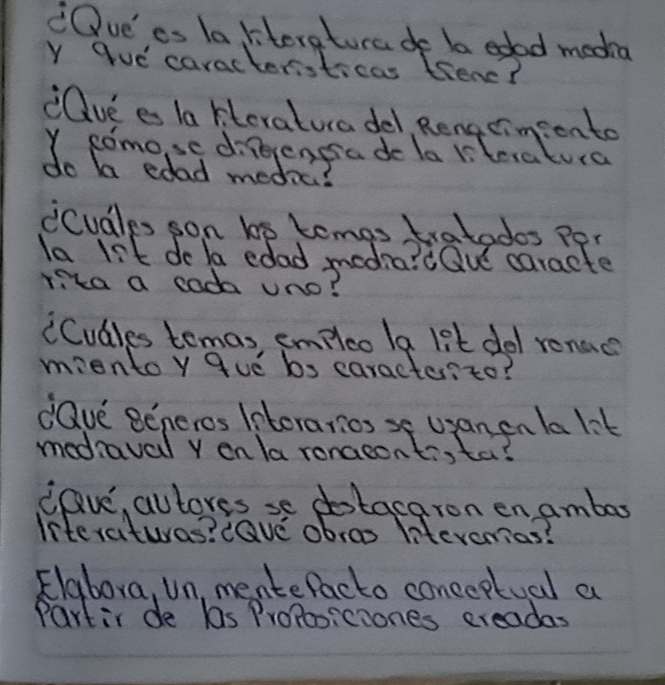 ¿Qué es la literatura de la edad media
y qué características tiene?
¿Qué es la literatura del Renacimiento
y cómo se diferencia de la literatura
de la edad media?
¿Cuáles son los temas tratados por
la lit de la edad media? ¿Qué caracte
riza a cada uno?
¿Cuáles temas empleo la lit del renaci
miento y qué los caracterizo?
¿Qué géneros literarios se usan en la lit
mediaval y en la renacentista?
¿Qué autores se destacaron en ambas
literaturas? ¿Qué obras literarias?
Elabora un mentefacto conceptual a
partir de las proposiciones creadas